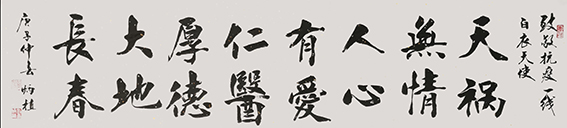 致敬抗疫一线
白衣天使
天祸
無情
人心
有愛
仁醫
厚德
大地
長春
庚子仲